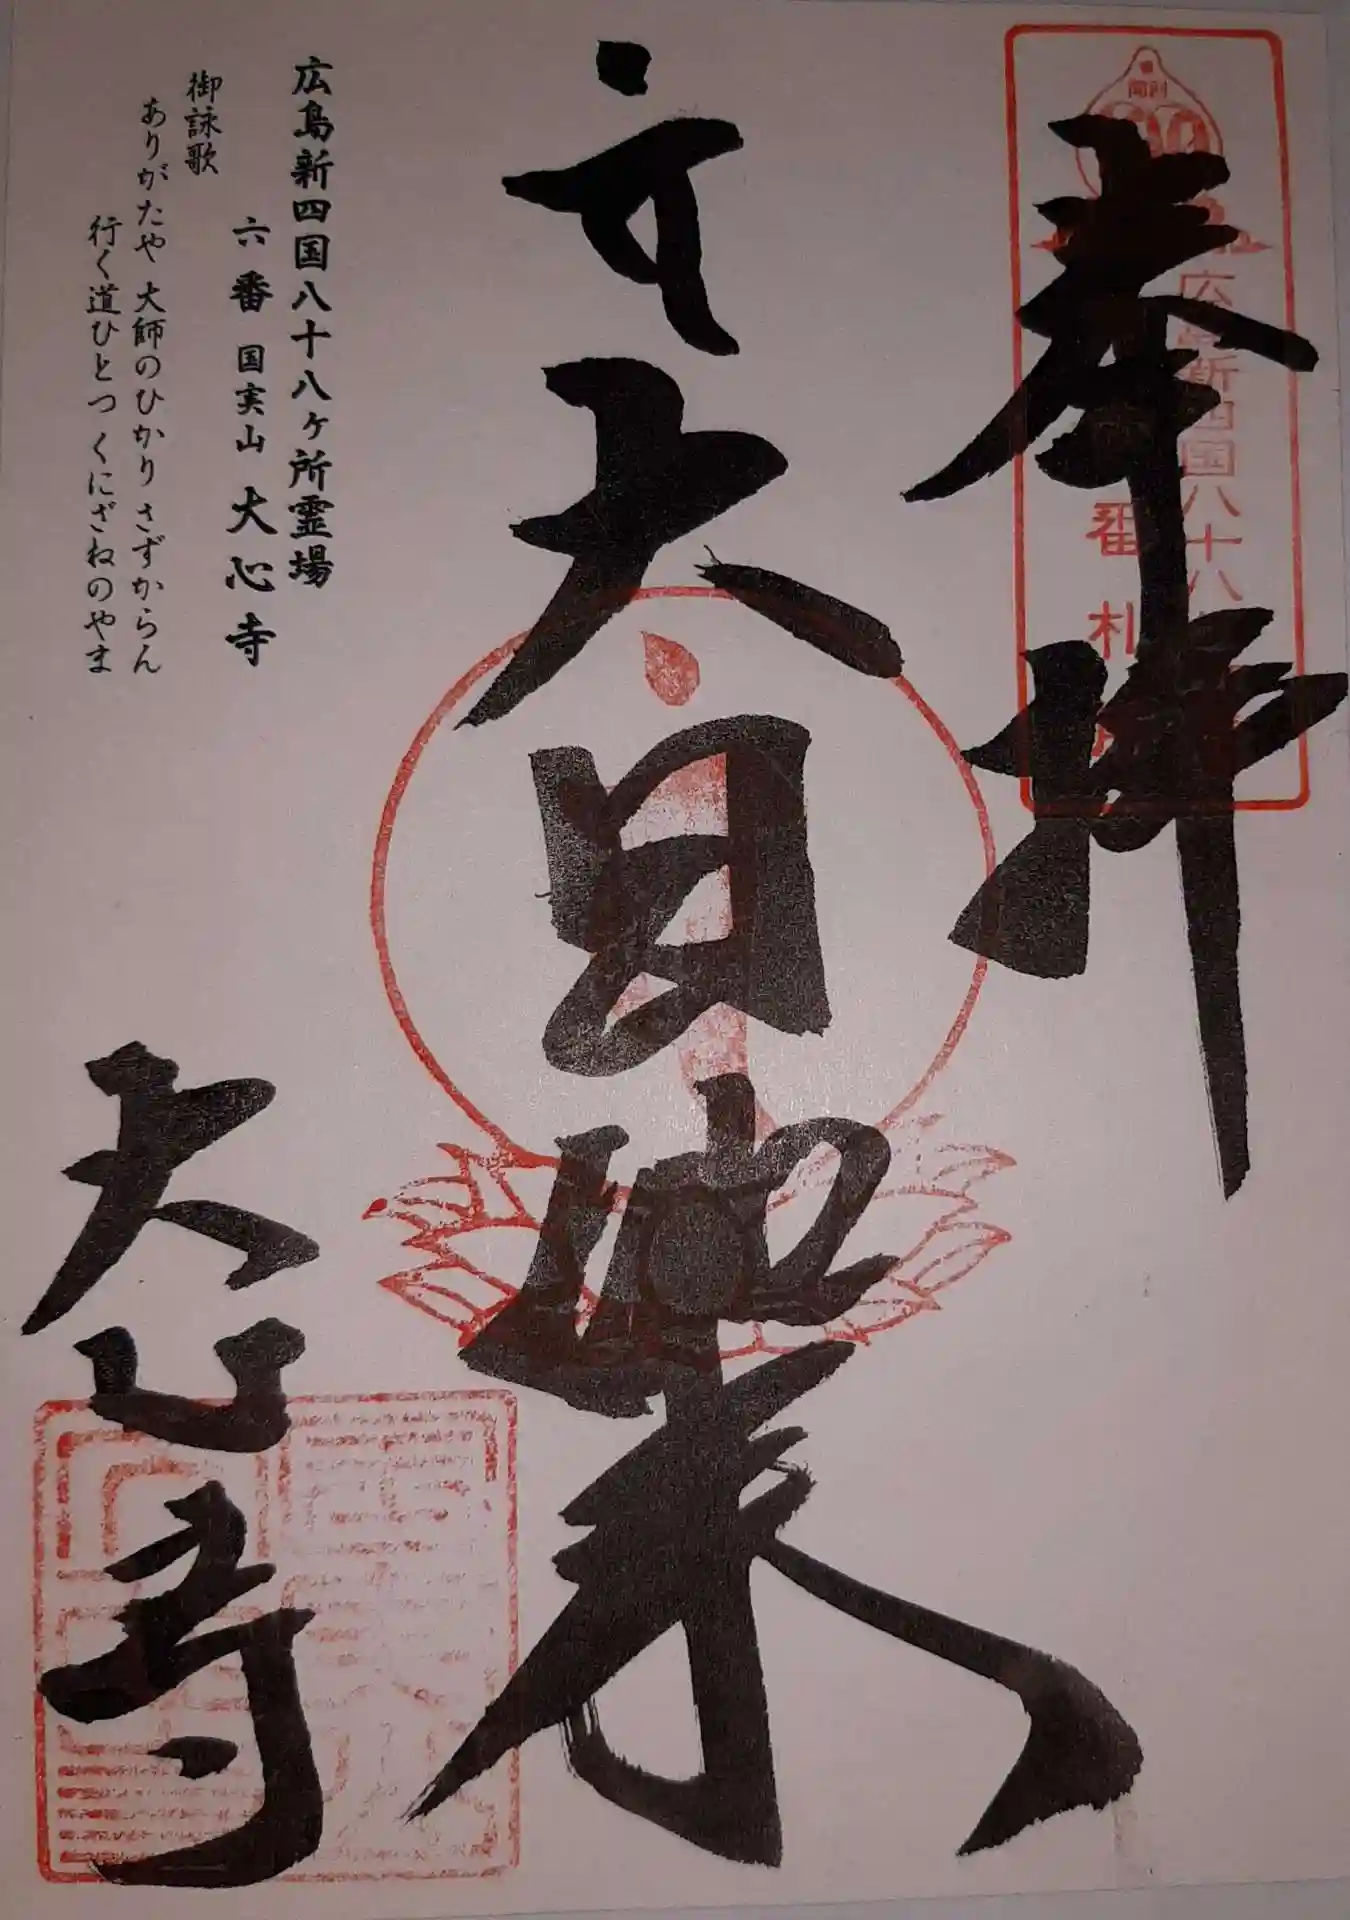 奉拝
開創
広島新四国八十八
番札所
大日如来
大心寺
広島新四国八十八ヶ所霊場
六番 国実山 大心寺
御詠歌
ありがたや 大師のひかり さずからん
行く道ひとつ くにざねのやま